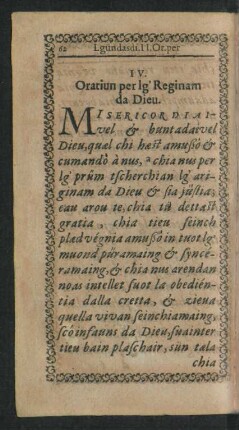 62 Lgündasdi.II.Or.per
IV.
Oratiun per lg' Reginam
da Dieu.
MISERICORDIAI-
vel & buntadaivel
Dieu, quel chi hæst amussô &
cumandô à nus, chia nus per
lg' prüm tscherchian lg' ari-
ginam da Dieu & sia jüstia;
eau arou te, chia tü dettast
gratia, chia tieu seinch
plæd végnia amussô in tuot lg'
muond püramaing, & syncé-
ramaing, & chia nus arendan
noas intellet suot la obediên-
tia dalla cretta, & zieva
quella vivan seinchiamaing,
scó infauns da Dieu, suainter
tieu bain plaschair, sun tala
chia